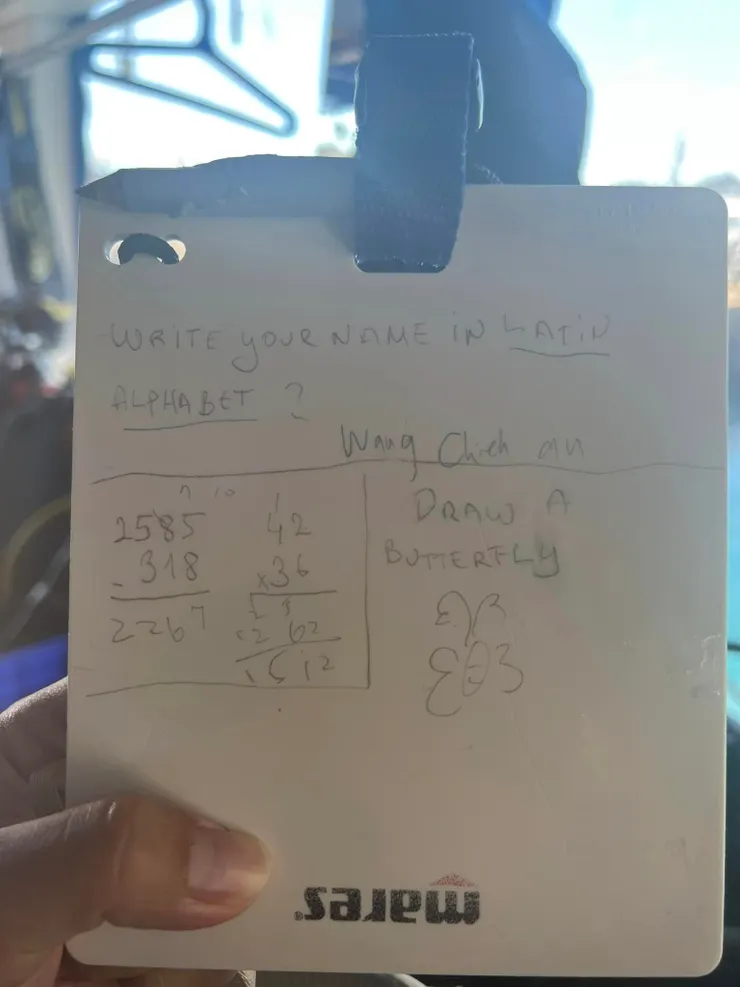 WRITE YOUR NAME IN LATIN
ALPHABET ?
Wang Chieh an
2585
- 318
2267
42
x36
1512
DRAW A
BUTTERFLY
mares